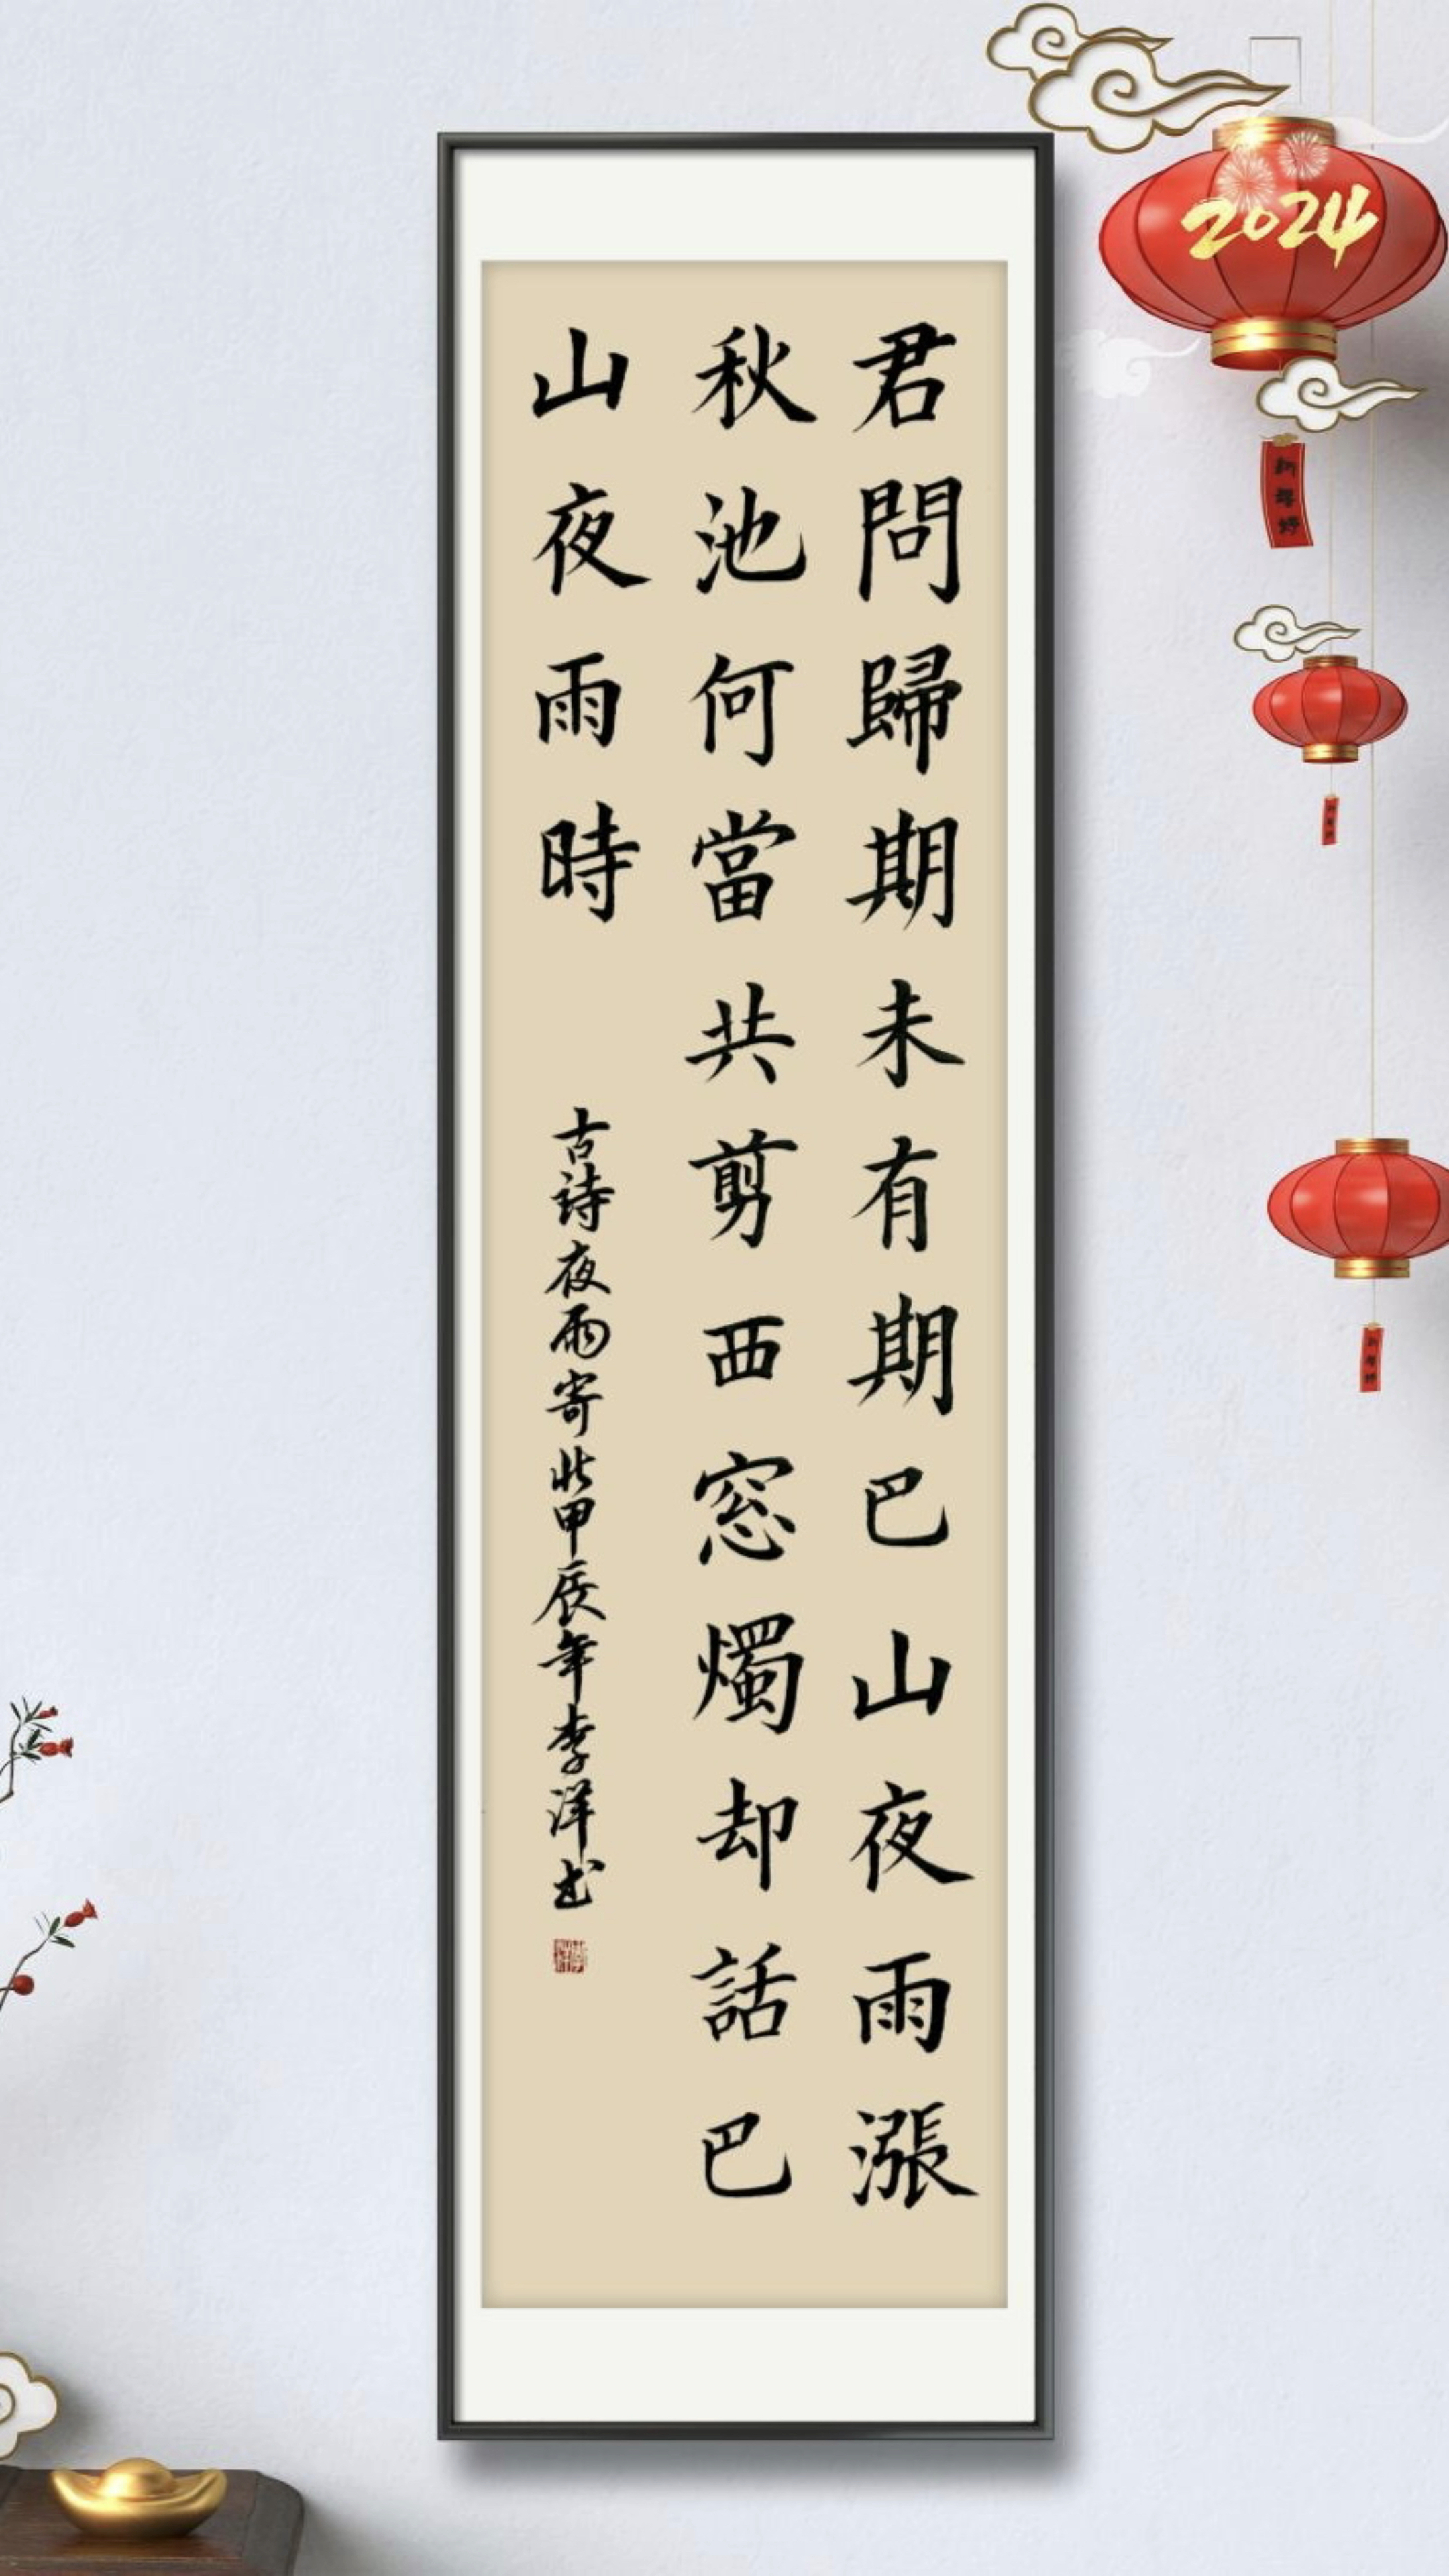 君問歸期未有期巴山夜雨漲
秋池何當共剪西窓燭却話巴
山夜雨時
古诗夜雨寄北甲辰年李洋书
2024